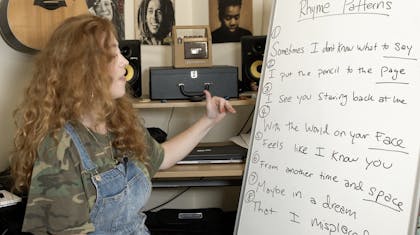 Rhyme Patterns
① Sometimes I don't know what to say
② I put the pencil to the page
③ I see you staring back at me
④ With the world on your Face
⑤ Feels like I know you
⑥ From another time and space
⑦ Maybe in a dream
⑧ That I